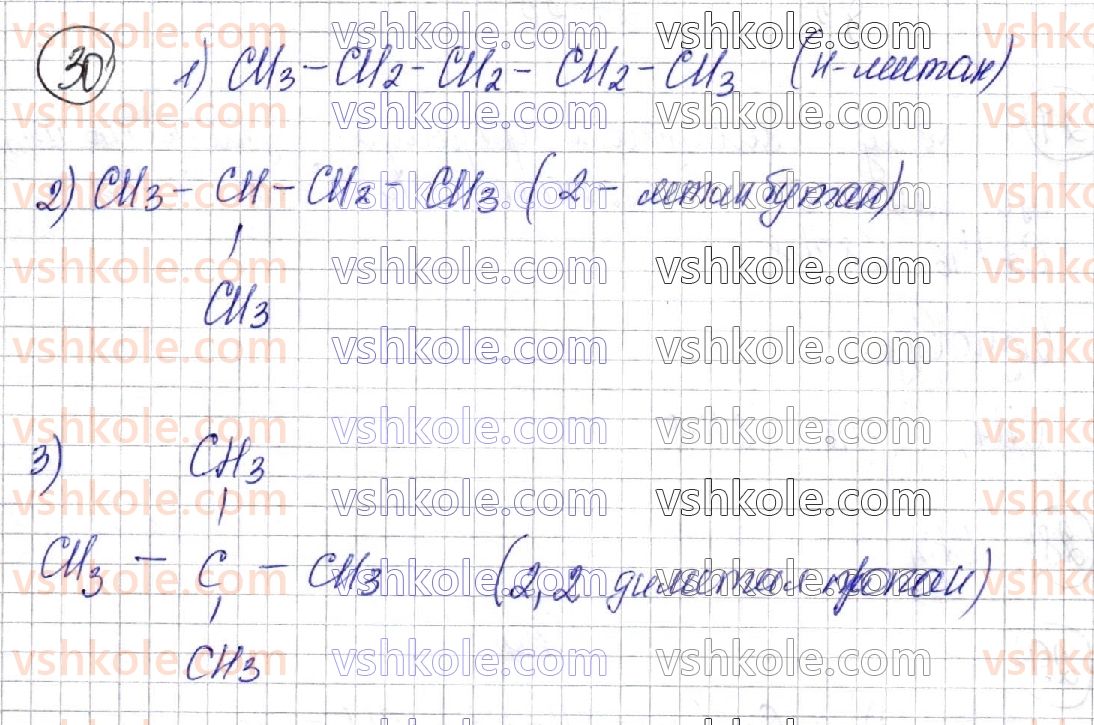 30
1) CH3 – CH2 – CH2 – CH2 – CH3 (н-пентан)
2) CH3 – CH – CH2 – CH3 (2 – метилбутан)
CH3
3) CH3
CH3 – C – CH3 (2,2 диметилпропан)
CH3
vshkole.com